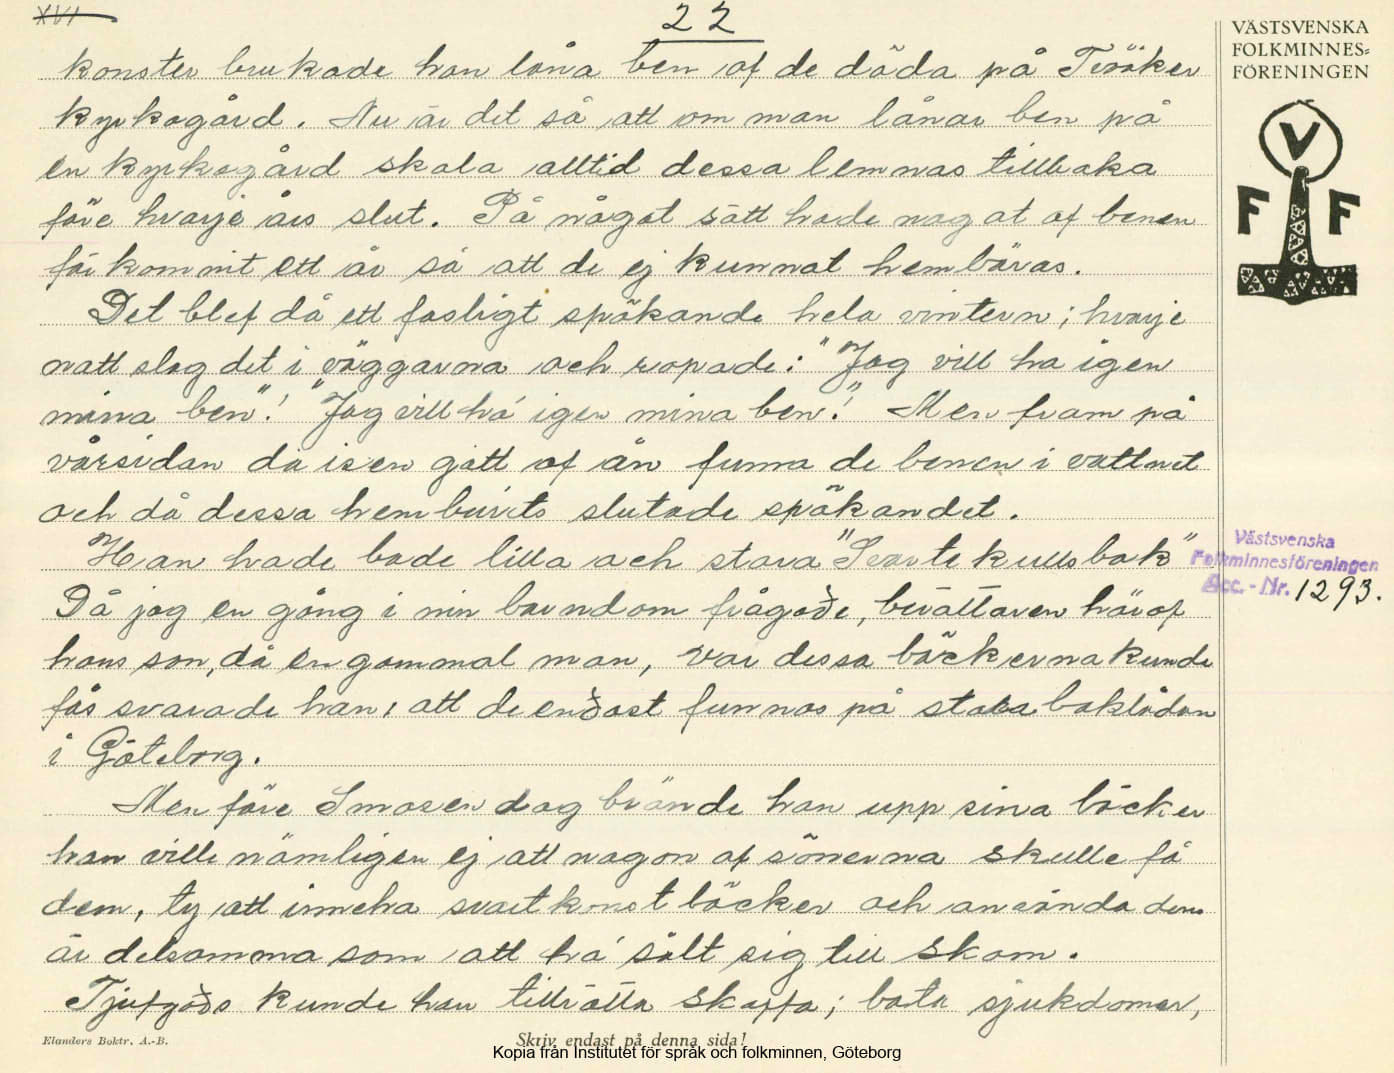 XVI
22
konster brukade han låna ben af de döda på Teröker
kyrkogård. Nu är det så att om man lånar ben på
en kyrkogård skola alltid dessa lemnas tillbaka
före hvarje års slut. På något sätt hade nogot af benen
förkommit ett år så att de ej kunnat hembäras.
Det blef då ett fasligt spökande hela vintern; hvarje
natt slog det i väggarna och ropade: "Jag vill ha igen
mina ben"! "Jag vill ha igen mina ben"! Men fram på
vårsidan då isen gått af ån funna de benen i vattnet
och då dessa hemburits slutade spökandet.
Han hade både lilla och stora "Svartekullsbok"
Då jag en gång i min barndom frågade, berättaren härof
hans son, då en gammal man, var dessa böckerna kunde
fås svarade han, att de endast funnos på stora boklådan
i Göteborg.
Men före Smosen dog brände han upp sina böcker
han ville nämligen ej att nogon af sönerna skulle få
dem, ty att inneha svartkonstböcker och använda dem
är detsamma som att ha sålt sig till skam.
Tjufgods kunde han tillrätta skaffa; bota sjukdomar,
VÄSTSVENSKA
FOLKMINNES=
FÖRENINGEN
V
F F
Västsvenska
Folkminnesföreningen
Acc. - Nr. 1293.
Elanders Boktr. A.-B.
Skriv endast på denna sida!
Kopia från Institutet för språk och folkminnen, Göteborg